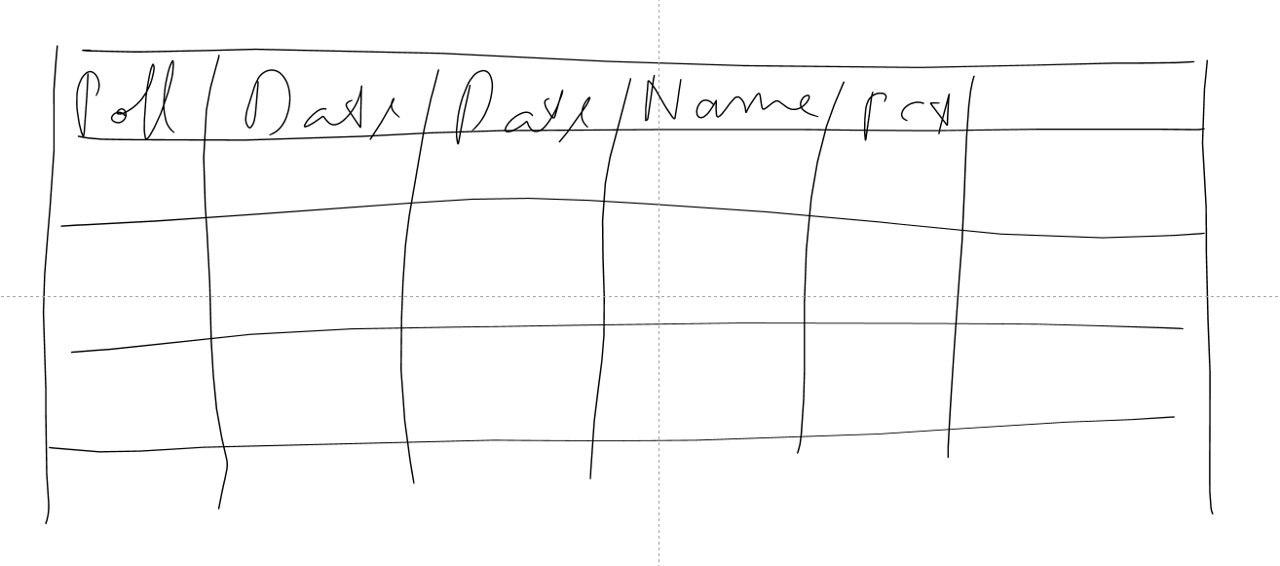 Poll Date Date Name Pct